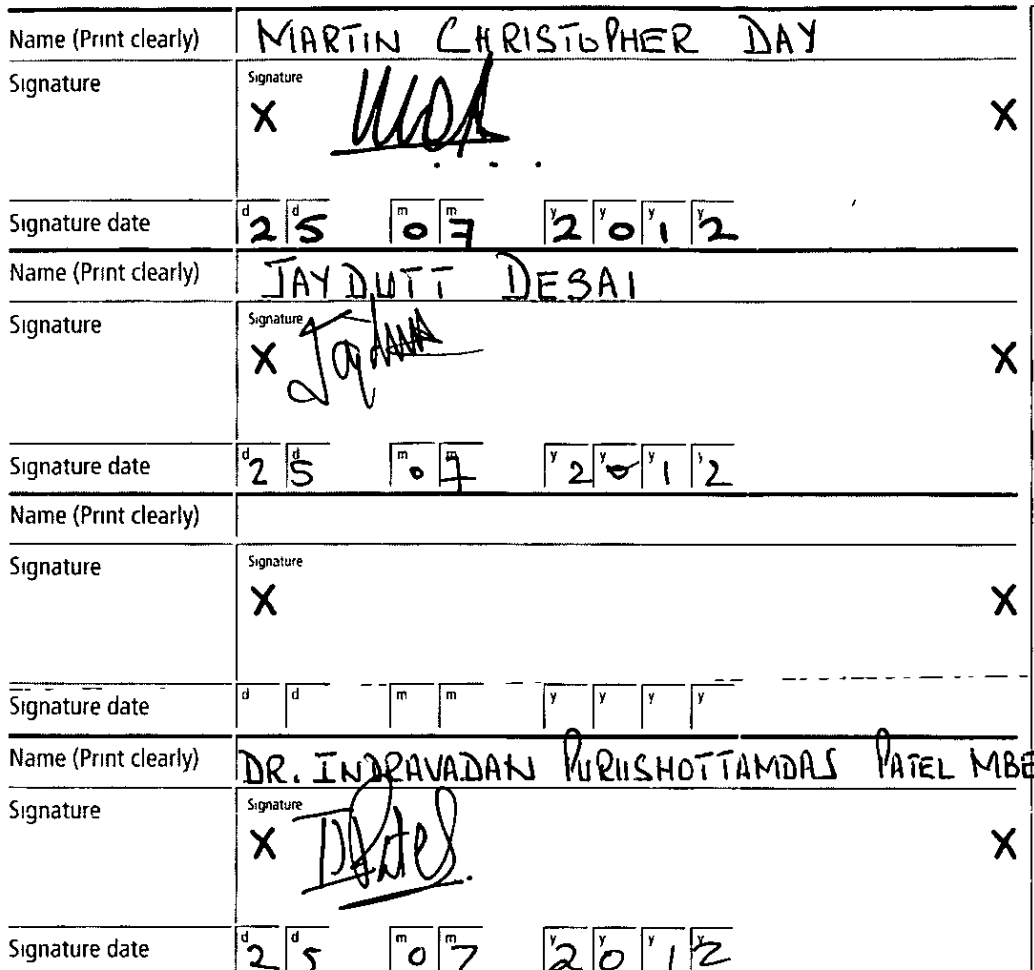 Name (Print clearly) MARTIN CHRISTOPHER DAY
Signature Signature
X X
Signature date d2 d5 m0 m7 y2 y0 y1 y2
Name (Print clearly) JAYDUTT DESAI
Signature Signature
X X
Signature date d2 d5 m0 m7 y2 y0 y1 y2
Name (Print clearly)
Signature Signature
X X
Signature date d d m m y y y y
Name (Print clearly) DR. INDRAVADAN PURUSHOTTAMDAS PATEL MBE
Signature Signature
X IPatel X
Signature date d2 d5 m0 m7 y2 y0 y1 y2